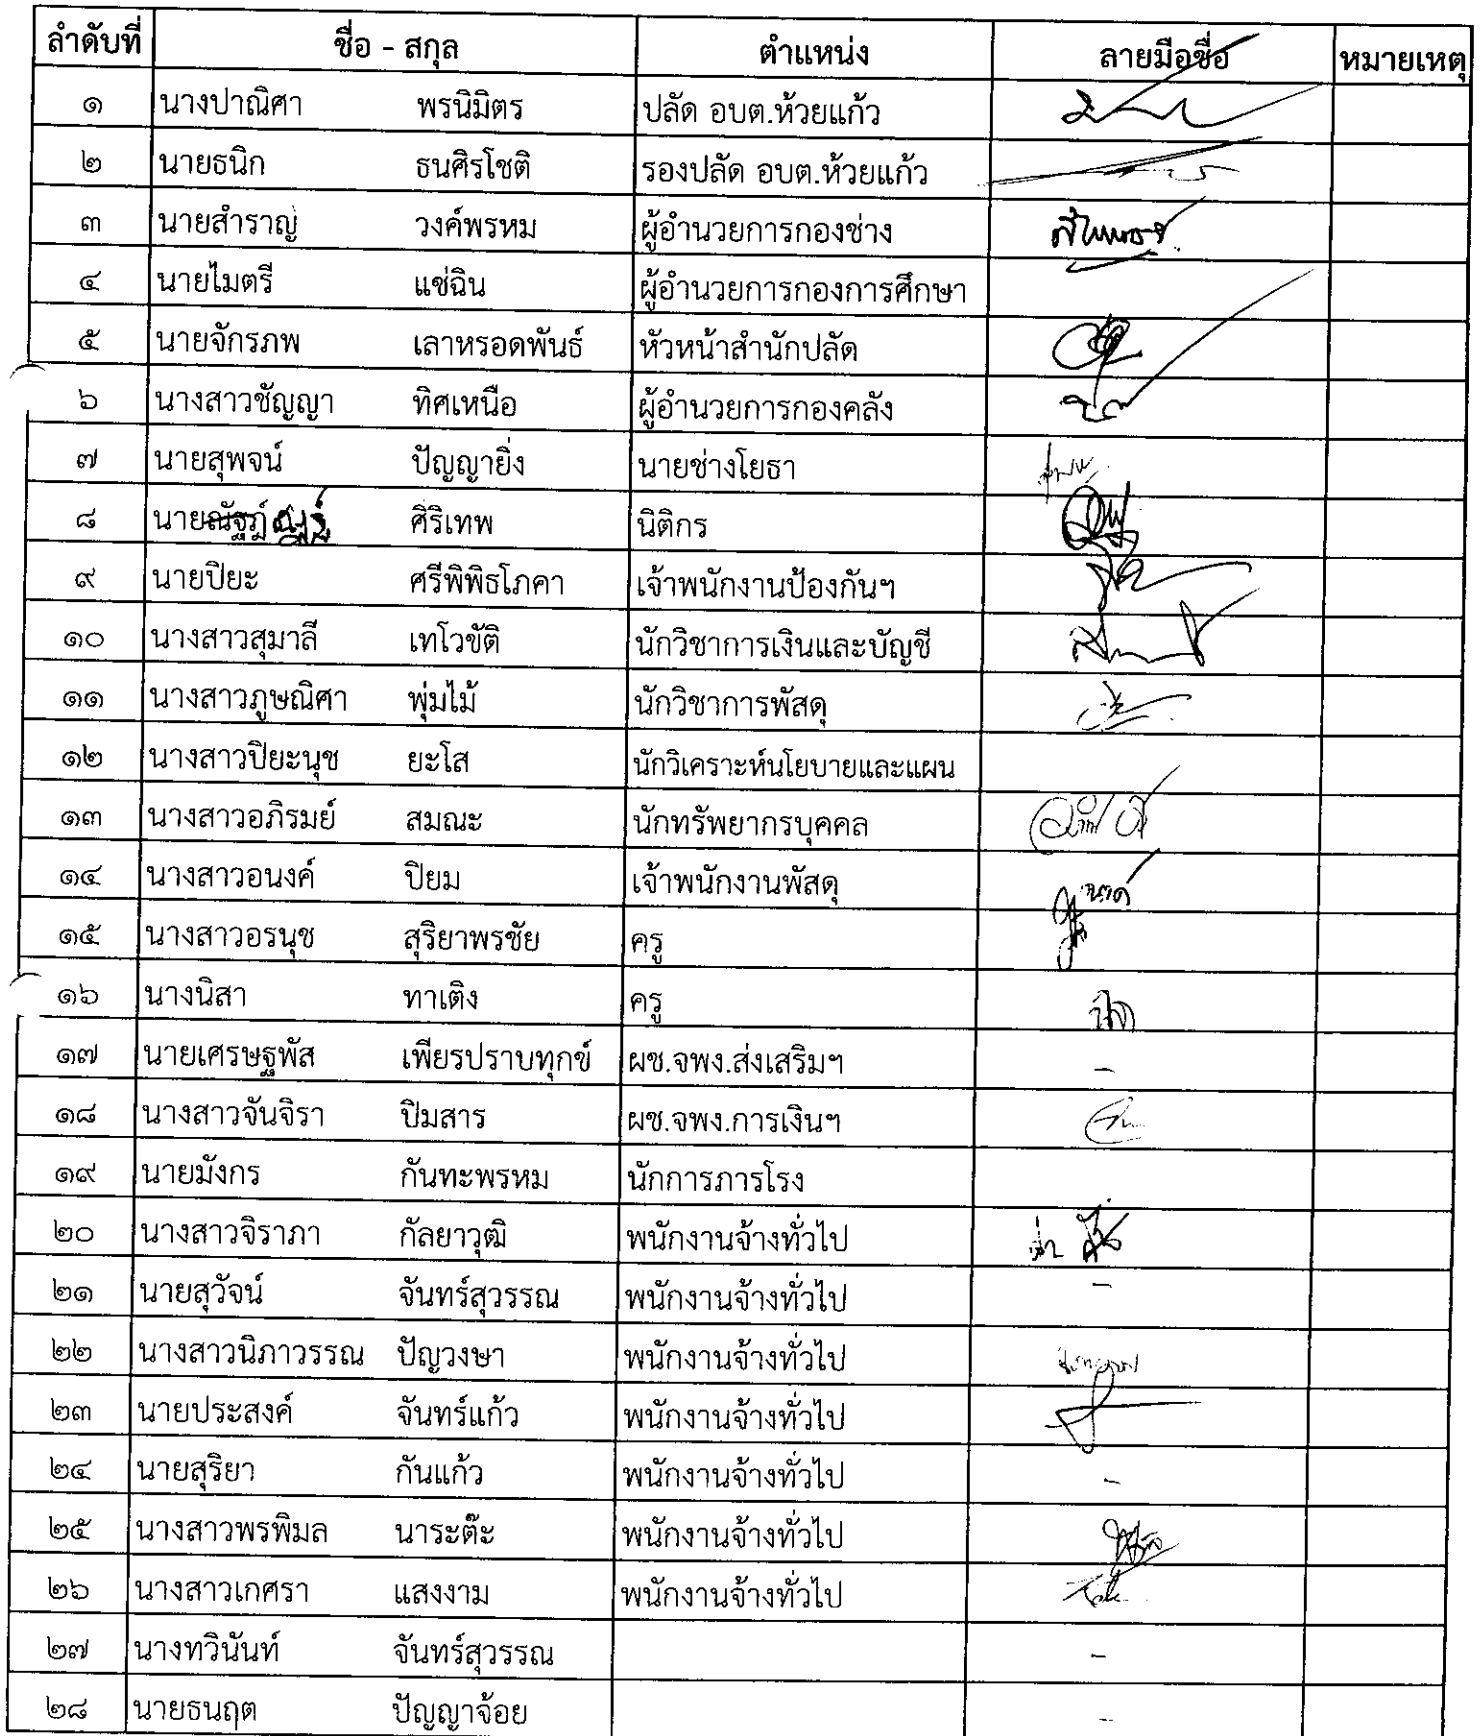 ลำดับที่ ชื่อ - สกุล ตำแหน่ง ลายมือชื่อ หมายเหตุ
๑ นางปาณิศา พรนิมิตร ปลัด อบต.ห้วยแก้ว
๒ นายธนิก ธนศิรโชติ รองปลัด อบต.ห้วยแก้ว
๓ นายสำราญ วงค์พรหม ผู้อำนวยการกองช่าง
๔ นายไมตรี แซ่ฉิน ผู้อำนวยการกองการศึกษา
๕ นายจักรภพ เลาหรอดพันธ์ หัวหน้าสำนักปลัด
๖ นางสาวชัญญา ทิศเหนือ ผู้อำนวยการกองคลัง
๗ นายสุพจน์ ปัญญายิ่ง นายช่างโยธา
๘ นาย ศิริเทพ นิติกร
๙ นายปิยะ ศรีพิพิธโภคา เจ้าพนักงานป้องกันฯ
๑๐ นางสาวสุมาลี เทโวขัติ นักวิชาการเงินและบัญชี
๑๑ นางสาวภูษณิศา พุ่มไม้ นักวิชาการพัสดุ
๑๒ นางสาวปิยะนุช ยะโส นักวิเคราะห์นโยบายและแผน
๑๓ นางสาวอภิรมย์ สมณะ นักทรัพยากรบุคคล
๑๔ นางสาวอนงค์ ปิยม เจ้าพนักงานพัสดุ
๑๕ นางสาวอรนุช สุริยาพรชัย ครู
๑๖ นางนิสา ทาเติง ครู
๑๗ นายเศรษฐพัส เพียรปราบทุกข์ ผช.จพง.ส่งเสริมฯ -
๑๘ นางสาวจันจิรา ปิมสาร ผช.จพง.การเงินฯ
๑๙ นายมังกร กันทะพรหม นักการภารโรง
๒๐ นางสาวจิราภา กัลยาวุฒิ พนักงานจ้างทั่วไป
๒๑ นายสุวัจน์ จันทร์สุวรรณ พนักงานจ้างทั่วไป -
๒๒ นางสาวนิภาวรรณ ปัญวงษา พนักงานจ้างทั่วไป
๒๓ นายประสงค์ จันทร์แก้ว พนักงานจ้างทั่วไป
๒๔ นายสุริยา กันแก้ว พนักงานจ้างทั่วไป -
๒๕ นางสาวพรพิมล นาระต๊ะ พนักงานจ้างทั่วไป
๒๖ นางสาวเกศรา แสงงาม พนักงานจ้างทั่วไป
๒๗ นางทวินันท์ จันทร์สุวรรณ -
๒๘ นายธนฤต ปัญญาจ้อย -